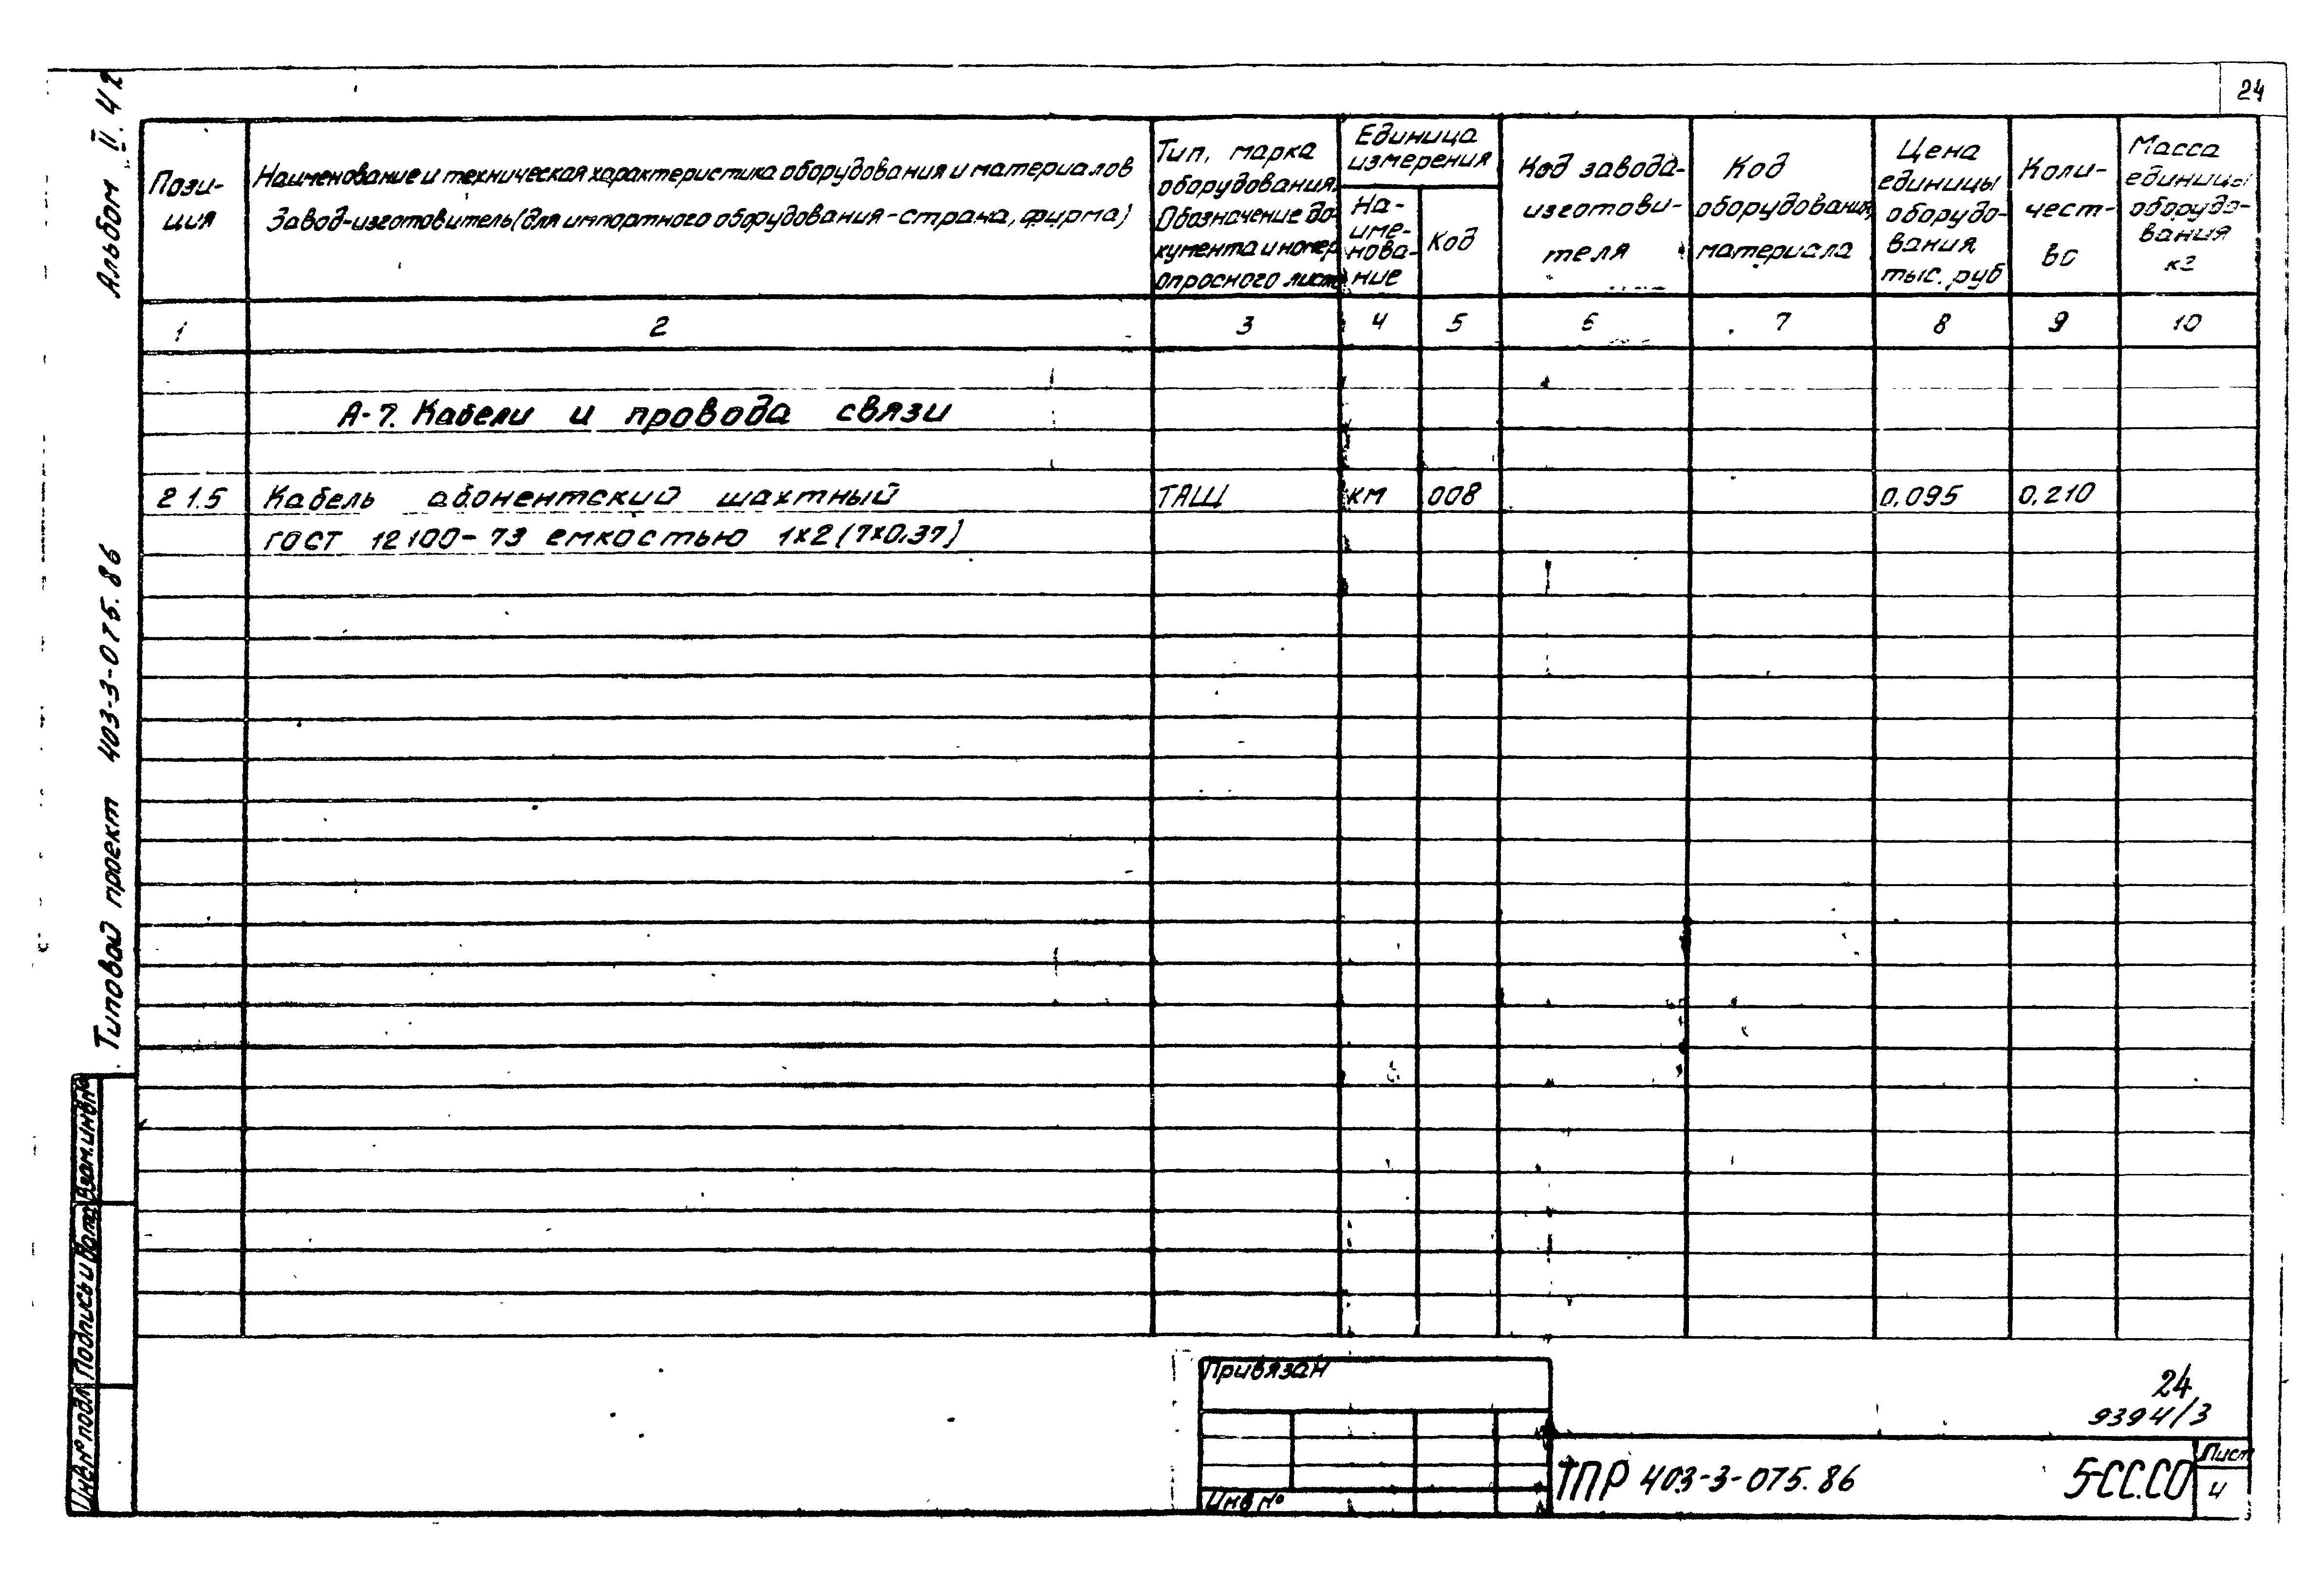 24
Альбом II.42
Типовой проект 403-3-075.86
Пози-
ция
Наименование и техническая характеристика оборудования и материалов
Завод-изготовитель (для импортного оборудования - страна, фирма)
Тип, марка
оборудования.
Обозначение до-
кумента и номер
опросного листа
Единица
измерения
На-
име-
нова-
ние
Код
Код завода-
изготови-
теля
Код
оборудования,
материала
Цена
единицы
оборудо-
вания,
тыс. руб
Коли-
чест-
во
Масса
единицы
оборудо-
вания
кг
1 2 3 4 5 6 7 8 9 10
А-7. Кабели и провода связи
2 1.5 Кабель абонентский шахтный ТАШ км 008 0,095 0,210
ГОСТ 12100-73 емкостью 1х2 (7х0,37)
Взам.инв№
Подпись и дата
Инв.№ подл
Привязан
Инв №
24
9394/3
ТПР 403-3-075.86 5-СС.СО
Лист
4